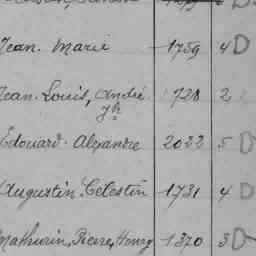 Jean. Marie 1759 4 D
Jean. Louis, André 1728 2
Jh
Edouard. Alexandre 2022 5 D
Augustin. Celestin 1731 4 D
Mathurin, Pierre, Henry 1370 3 D